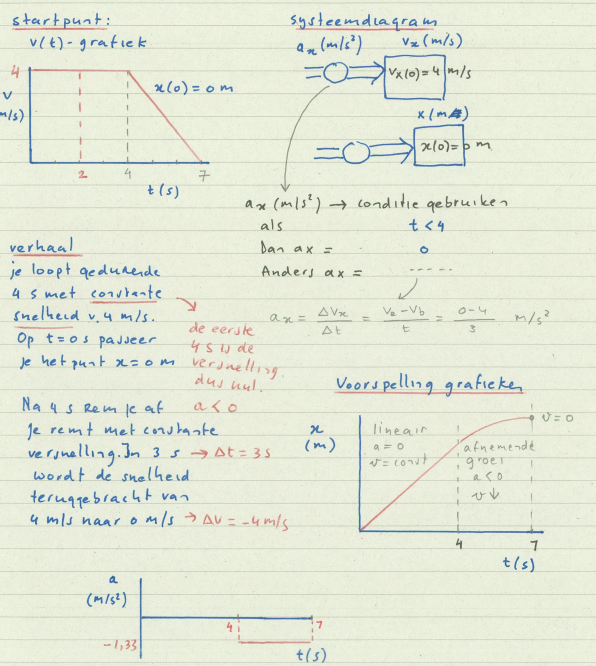 startpunt:
v(t)-grafiek
4
v
m/s)
x(0) = 0 m
2
4
7
t(s)
systeemdiagram
ax(m/s²)
vx(m/s)
vx(0)=4 m/s
x(m)
x(0)=0 m
ax(m/s²) → conditie gebruiken
als t<4
Dan ax = 0
Anders ax = -----
ax = ΔVx/Δt = (Ve-Vb)/t = (0-4)/3 m/s²
verhaal
je loopt gedurende
4 s met constante
snelheid v. 4 m/s.
Op t=0 s passeer
je het punt x=0 m
de eerste
4 s is de
versnelling
dus nul.
Na 4 s Rem je af a<0
Je remt met constante
versnelling. In 3 s → Δt = 3 s
wordt de snelheid
teruggebracht van
4 m/s naar 0 m/s → ΔV = -4 m/s
Voorspelling grafieken
x
(m)
lineair
a=0
v=const
afnemende
groei
a<0
v↓
v=0
4
7
t(s)
a
(m/s²)
4
7
-1,33
t(s)